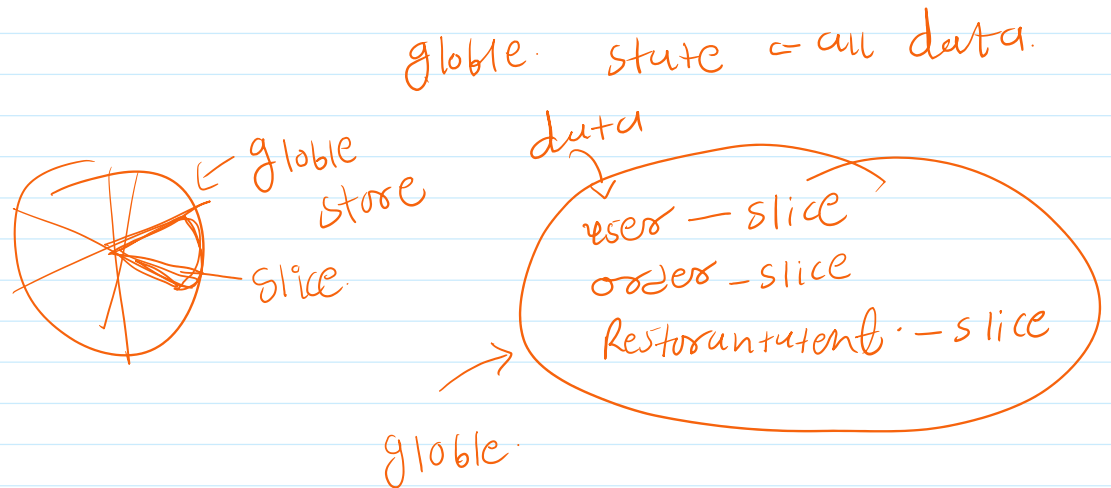 globle. state = all data.
data
globle
store
slice.
user - slice
order - slice
Restorantutent. - slice
globle.